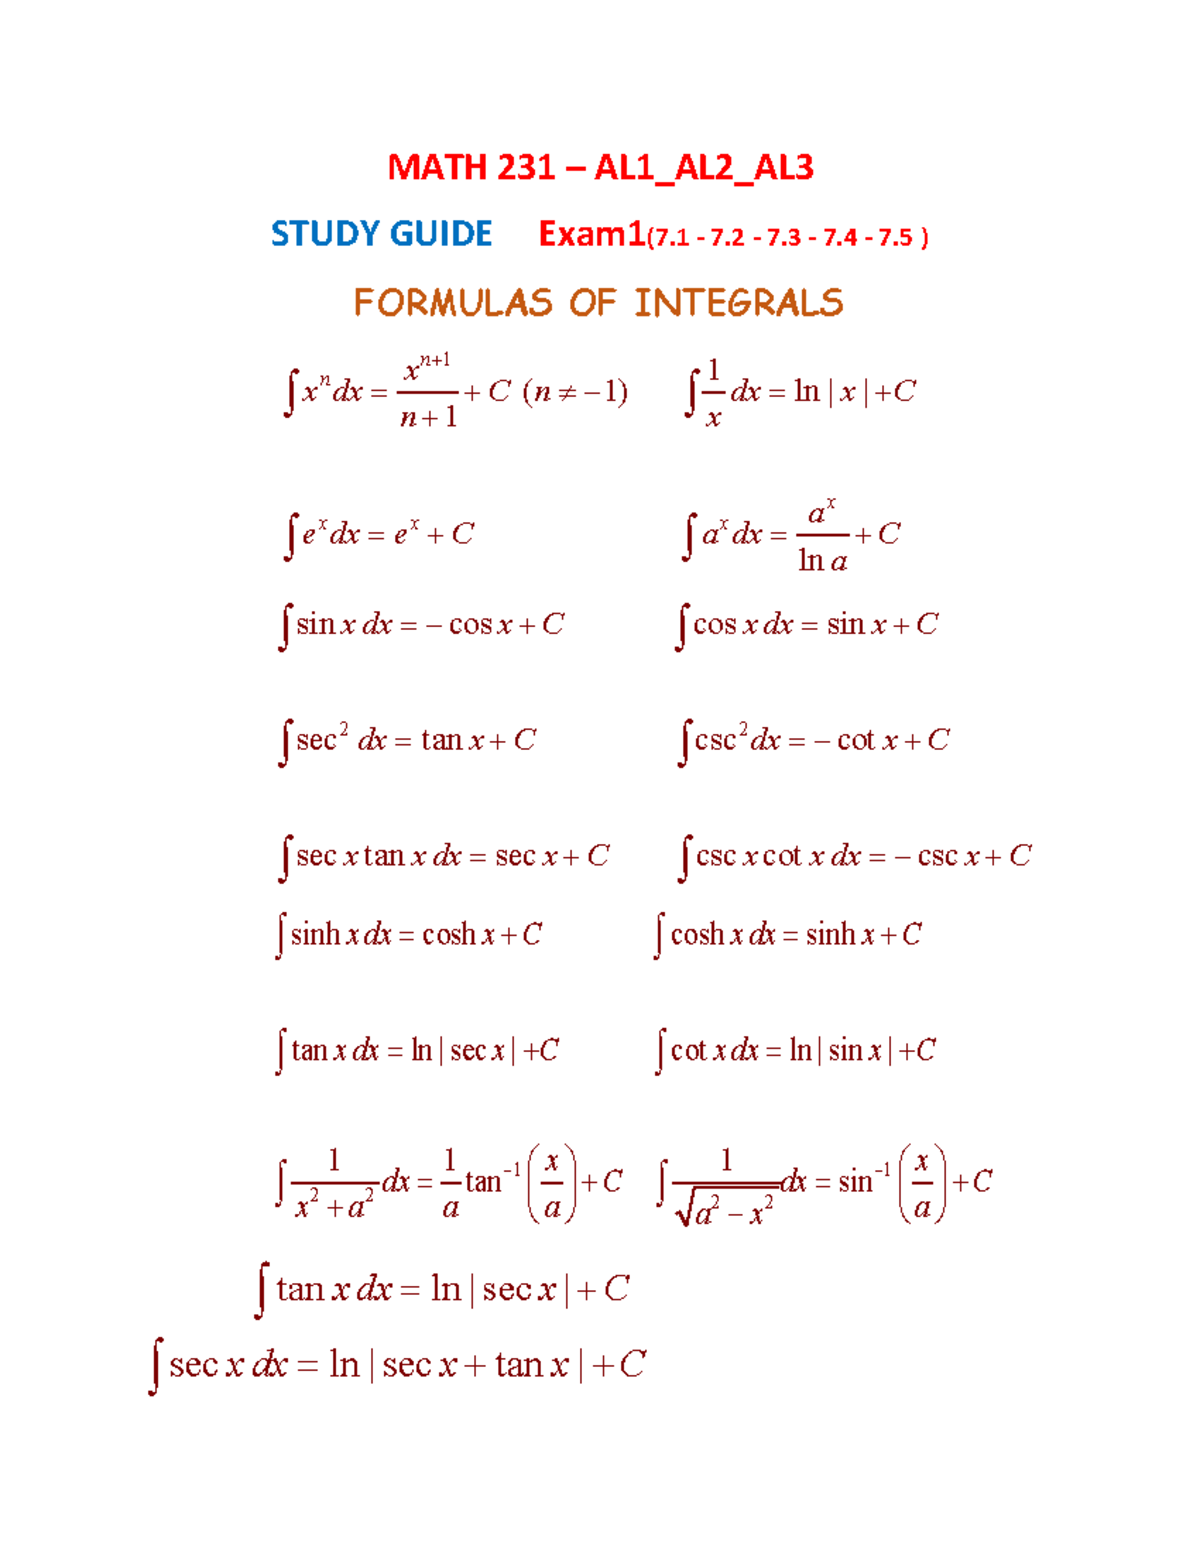 MATH 231 – AL1_AL2_AL3
STUDY GUIDE Exam1(7.1 - 7.2 - 7.3 - 7.4 - 7.5 )
FORMULAS OF INTEGRALS
∫ xⁿ dx = xⁿ⁺¹/(n + 1) + C (n ≠ −1) ∫ 1/x dx = ln | x | +C
∫ eˣ dx = eˣ + C ∫ aˣ dx = aˣ/ln a + C
∫ sin x dx = − cos x + C ∫ cos x dx = sin x + C
∫ sec² dx = tan x + C ∫ csc² dx = − cot x + C
∫ sec x tan x dx = sec x + C ∫ csc x cot x dx = − csc x + C
∫ sinh x dx = cosh x + C ∫ cosh x dx = sinh x + C
∫ tan x dx = ln | sec x | +C ∫ cot x dx = ln | sin x | +C
∫ 1/(x² + a²) dx = 1/a tan⁻¹(x/a) + C ∫ 1/√(a² − x²) dx = sin⁻¹(x/a) + C
∫ tan x dx = ln | sec x | + C
∫ sec x dx = ln | sec x + tan x | +C